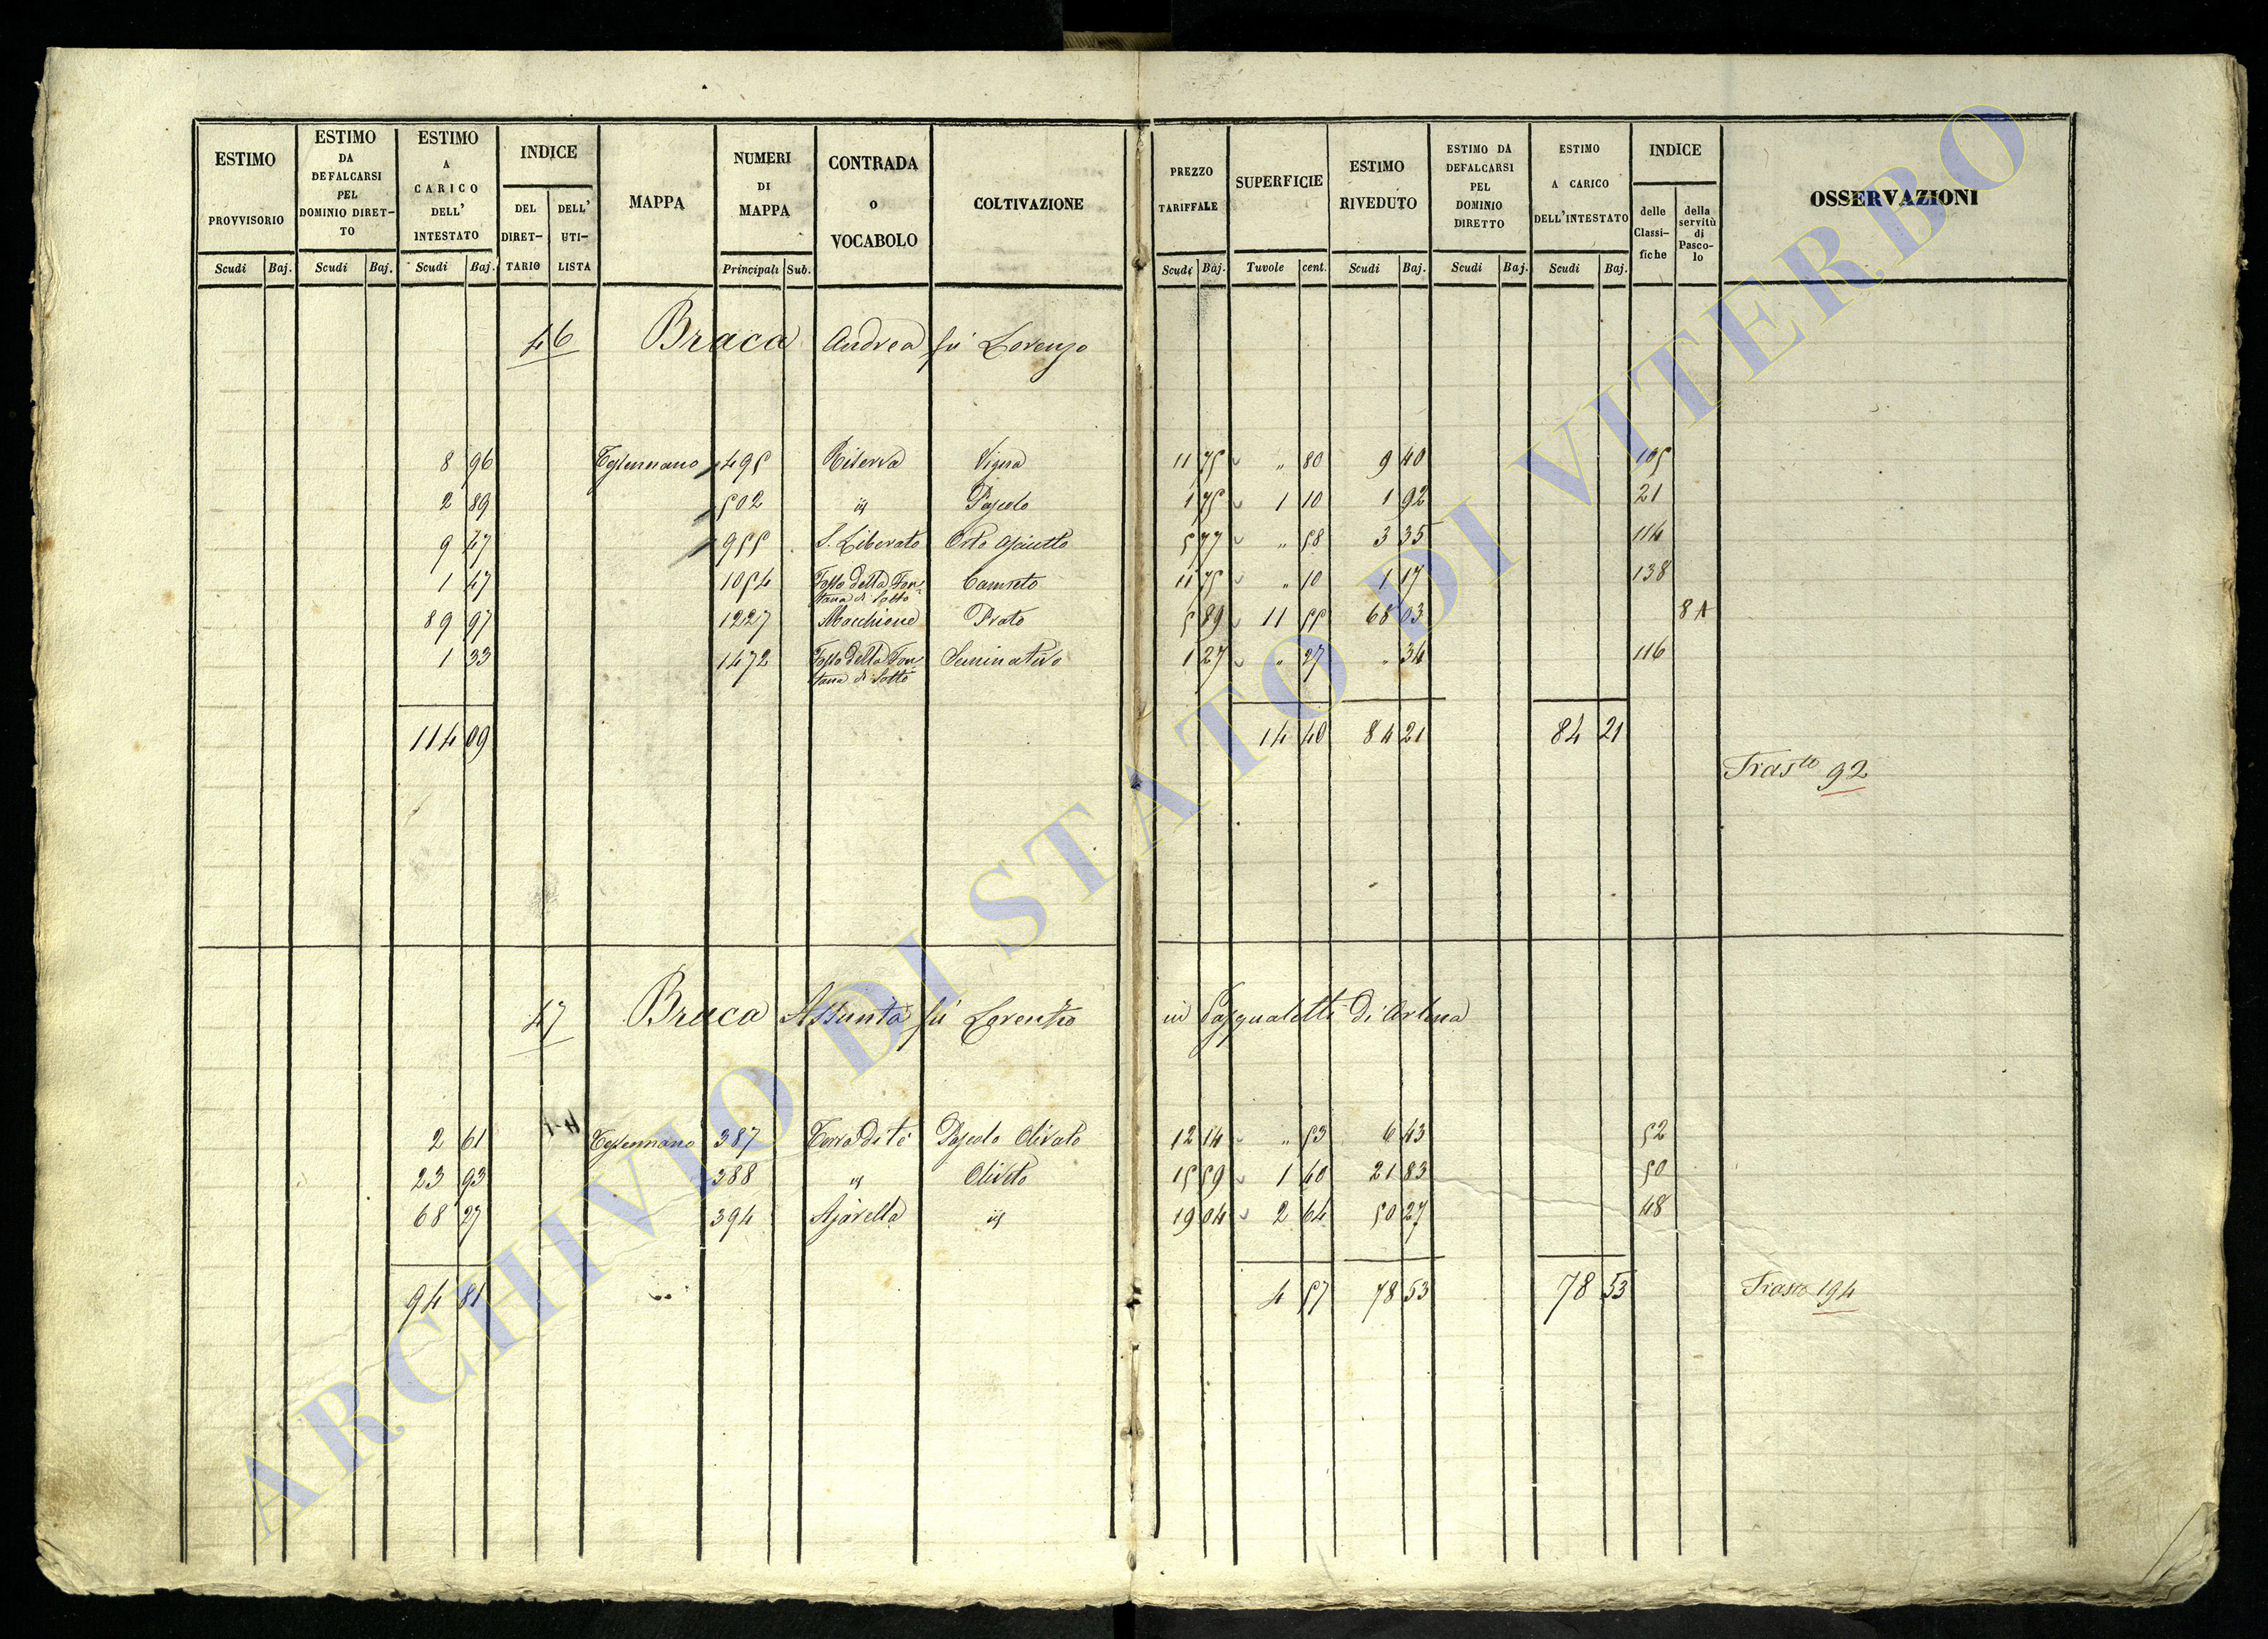 ESTIMO PROVVISORIO | ESTIMO DA DEFALCARSI PEL DOMINIO DIRET-TO | ESTIMO A CARICO DELL' INTESTATO | INDICE | MAPPA | NUMERI DI MAPPA | CONTRADA o VOCABOLO | COLTIVAZIONE | PREZZO TARIFFALE | SUPERFICIE | ESTIMO RIVEDUTO | ESTIMO DA DEFALCARSI PEL DOMINIO DIRETTO | ESTIMO A CARICO DELL'INTESTATO | INDICE | OSSERVAZIONI
DEL DIRET-TARIO | DELL' UTI-LISTA | delle Classi-fiche | della servitù di Pasco-lo
Scudi | Baj. | Scudi | Baj. | Scudi | Baj. | Principali | Sub. | Scudi | Baj. | Tavole | cent. | Scudi | Baj. | Scudi | Baj. | Scudi | Baj.
46 Braca Andrea fù Lorenzo
8 96 Tessennano 495 Riserva Vigna 11 75 " 80 9 40 105
2 89 502 id Pascolo 1 75 1 10 1 92 21
9 47 955 S. Liberato Orto asciutto 5 77 " 58 3 35 114
1 47 1054 Fosso della Fontana di Sotto Canneto 11 75 " 10 1 17 138
89 97 1227 Macchione Prato 5 89 11 55 68 03 8 A
1 33 1472 Fosso della Fontana di Sotto Seminativo 1 27 " 27 " 34 116
114 09 14 40 84 21 84 21
Trasto 92
47 Braca Assunta fù Lorenzo in Pasqualetti di Arlena
2 61 Tessennano 387 Pascolo Olivato 12 14 " 53 6 43 52
23 93 388 id Oliveto 15 59 1 40 21 83 50
68 27 394 id 19 04 2 64 50 27 48
94 81 4 57 78 53 78 53 Trasto 194
ARCHIVIO DI STATO DI VITERBO